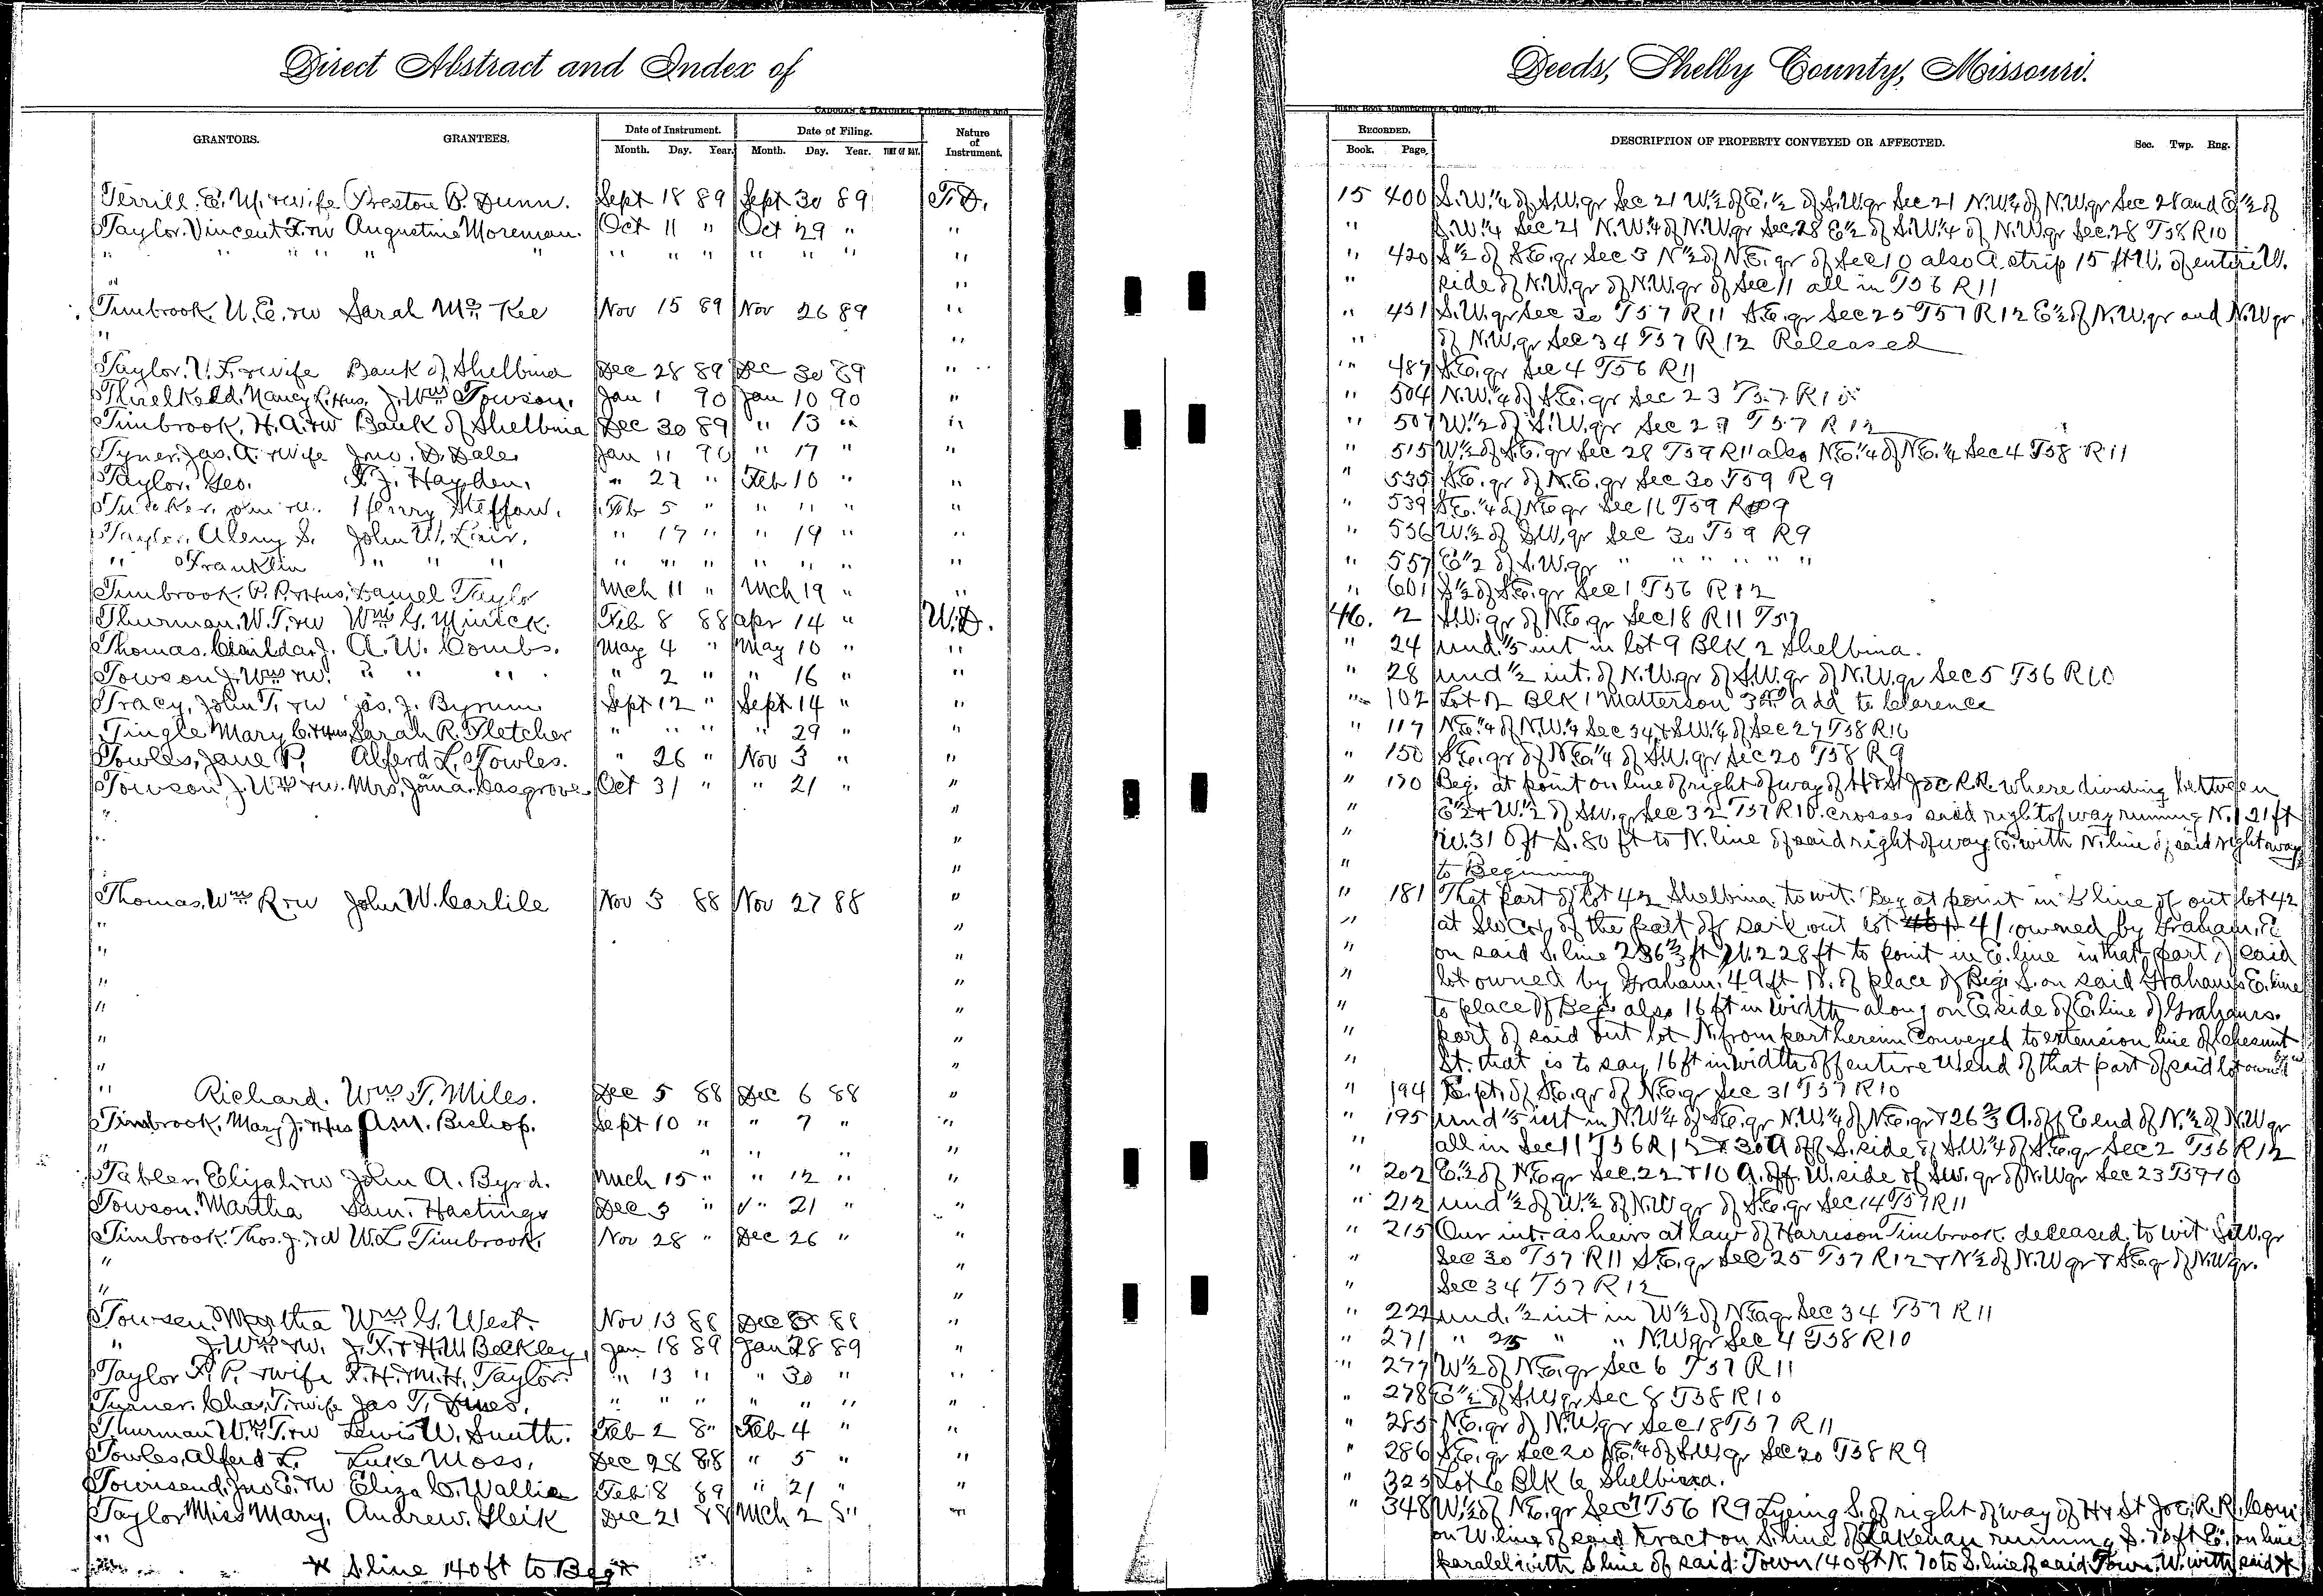 Direct Abstract and Index of Deeds, Shelby County, Missouri.
CADOGAN & HATCHER, Printers, Binders and Blank Book Manufacturers, Quincy, Ill.
GRANTORS. GRANTEES. Date of Instrument. Date of Filing. Nature of Instrument. RECORDED. DESCRIPTION OF PROPERTY CONVEYED OR AFFECTED. Sec. Twp. Rng.
Month. Day. Year. Month. Day. Year. TIME OF DAY. Book. Page.
Terrill. E. M. & wife Preston B. Dunn. Sept 18 89 Sept 30 89 T.D. 15 400 S.W.¼ of S.W.gr Sec 21 W.½ of E.½ of S.W.gr Sec 21 N.W.¼ of N.W.gr Sec 28 and E½ of
Taylor. Vincent F. & w Augustine Moreman. Oct 11 " Oct 29 " " " S.W.¼ Sec 21 N.W.¼ of N.W.gr Sec. 28 E½ of S.W.¼ of N.W.gr Sec. 28 T58 R10
" " " " " " " " " " " " 420 S½ of S.E.gr Sec 3 N½ of N.E.gr of Sec 10 also A strip 15 ft W. of entire W.
" " " side of N.W.gr of N.W.gr of Sec 11 all in T56 R11
Timbrook. U. E. & w Sarah McKee Nov 15 89 Nov 26 89 " " 451 S.W.gr Sec 30 T57 R11 S.E.gr Sec 25 T57 R12 E½ of N.W.gr and N.W gr
" " " of N.W.gr Sec 34 T57 R12 Released
Taylor. V. F. & wife Bank of Shelbina Dec 28 89 Dec 30 89 " " 487 S.E.gr Sec 4 T56 R11
Threlkeld. Nancy & Hus. J. Wm Towson. Jan 1 90 Jan 10 90 " " 504 N.W.¼ of S.E.gr Sec 23 T57 R10
Timbrook, H. A. & w Bank of Shelbina Dec 30 89 " 13 " " " 507 W.½ of S.W.gr Sec 29 T57 R12
Tyner. Jas. A. & wife Jno. D. Dale Jan 11 90 " 17 " " " 515 W½ of S.E.gr Sec 28 T59 R11 also N.E.¼ of N.E.¼ Sec 4 T58 R11
Taylor. Geo. T. J. Hayden. " 27 " Feb 10 " " " 535 S.E. gr of N.E.gr Sec 30 T59 R9
Henry Steffan. Feb 5 " " " " " " 539 S.E.¼ of N.E.gr Sec 11 T59 R9
Taylor. Aleny S. John W. Lair. " 17 " " 19 " " " 556 W.½ of S.W.gr Sec 30 T59 R9
" Franklin " " " " " " " " " " " 557 E½ of S.W.gr " " " " "
Timbrook. P. P. & Hus. Daniel Taylor Mch 11 " Mch 19 " " " 601 S½ of S.E.gr Sec 1 T56 R12
Thurman. W. T. & w Wm G. Minick. Feb 8 88 Apr 14 " W.D. 46. 2 S.W. gr of N.E.gr Sec 18 R11 T57
Thomas. J. A. W. Combs. May 4 " May 10 " " " 24 und. ⅕ int in lot 9 Blk 2 Shelbina.
Towson J. Wm & w. " " " " 2 " " 16 " " " 28 und ½ int. of N.W.gr of S.W.gr of N.W.gr Sec 5 T56 R10
Tracy, John T. & w Jas. J. Byrum Sept 12 " Sept 14 " " " 102 Lot 12 Blk 1 Matterson 3rd add to Clarence
Tingle Mary C. & Hus Sarah R. Fletcher " " " " 29 " " " 117 N.E.¼ of N.W.¼ Sec 34 & S.W.¼ of Sec 27 T58 R10
Towles, Jane P. Alferd L. Towles. " 26 " Nov 3 " " " 150 S.E.gr of N.E.¼ of S.W.gr Sec 20 T58 R9
Towson, J. Wm & w. Mrs. Casgrove Oct 31 " " 21 " " " 170 Beg. at point on line of right of way of H & St Joe R.R. where dividing between
" " " E½ & W.½ of S.W.gr Sec 32 T57 R10. crosses said right of way running N. 121 ft
" " " W. 310 ft S. 80 ft to N. line of said right of way E. with N. line of said right away
" " to Begining
Thomas. Wm R & w John W. Carlile Nov 3 88 Nov 27 88 " " 181 That part of lot 42 Shelbina to wit. Beg at point in S line of out lot 42
" " " at SW Cor. of the part of said out lot 41 owned by Graham, E
" " " on said S. line 236⅔ ft N. 228 ft to point in E. line in that part of said
" " " lot owned by Graham. 49 ft N. of place of Beg. S. on said Grahams E. line
" " " to place of Beg. also 16 ft in width along on E side of E. line of Grahams.
" " " part of said out lot N. from part herein Conveyed to extension line of Chesnut
" " " St. that is to say 16 ft in width off entire W end of that part of said lot owned
" Richard. Wm T. Miles. Dec 5 88 Dec 6 88 " " 194 E. pt. of S.E.gr of N.E.gr Sec 31 T57 R10
Timbrook, Mary J. & Hus A.M. Bishop. Sept 10 " " 7 " " " 195 und ⅕ int in N.W¼ of S.E.gr N.W.¼ of N.E.gr & 26⅔ A. off E end of N.½ of N.W gr
" " " " " " all in Sec 11 T56 R12 & 30 A off S. side of S.W.¼ of S.E.gr Sec 2 T56 R12
Tabler. Elijah & w John A. Byrd. Mch 15 " " 12 " " " 202 E.½ of N.E.gr Sec. 22 & 10 A. off W. side of S.W. gr of N.W gr Sec 23 T59-10
Towson. Martha Sam. Hastings Dec 3 " " 21 " " " 212 und ½ of W.½ of N.W gr of S.E.gr Sec 14 T57 R11
Timbrook. Thos. J. & w W. L. Timbrook. Nov 28 " Dec 26 " " " 215 Our int. as heirs at law of Harrison Timbrook deceased, to wit S.W.gr
" " " Sec 30 T57 R11 S.E.gr Sec 25 T57 R12 & N½ of N.W gr & S.E.gr of N.W gr.
" " " Sec 34 T57 R12
Towson. Martha Wm G. West. Nov 13 88 Dec 88 " " 222 und. ½ int in W½ of N.E.gr Sec 34 T57 R11
" J. Wm & w. J. T. & H. W Beckley, Jan 18 89 Jan 28 89 " " 271 " " " N.W gr Sec 4 T58 R10
Taylor F. P. & wife F. H. & M. H. Taylor. " 13 " " 30 " " " 277 W½ of N.E.gr Sec 6 T57 R11
Turner. Chas. T. & wife Jas T. " " " " " " " " 278 E½ of S.W gr Sec 8 T58 R10
Thurman Wm T. & w Lewis W. Smith. Feb 2 8" Feb 4 " " " 285 N.E.gr of N.W gr Sec 18 T57 R11
Towles, Alferd L. Luke Moss. Dec 28 88 " 5 " " " 286 S.E.gr Sec 20 N.E.¼ of S.W.gr Sec 20 T58 R9
Townsend. Jno E. & w Eliza C. Wallie Feb 8 89 " 21 " " " 323 Lot 6 Blk 6 Shelbina.
Taylor Miss Mary. Andrew. Heik Dec 21 88 Mch 2 8" " " 348 W.½ of N.E.gr Sec 7 T56 R9 Lyeing S. of right of way of H & St Joe. R.R. Com
" on W. line of said tract on S. line of Lakenan running S. 70 ft E. on line
* S. line 140 ft to Beg * paralel with S line of said Town 140 ft N. 70 to S. line of said Town. W. with said *